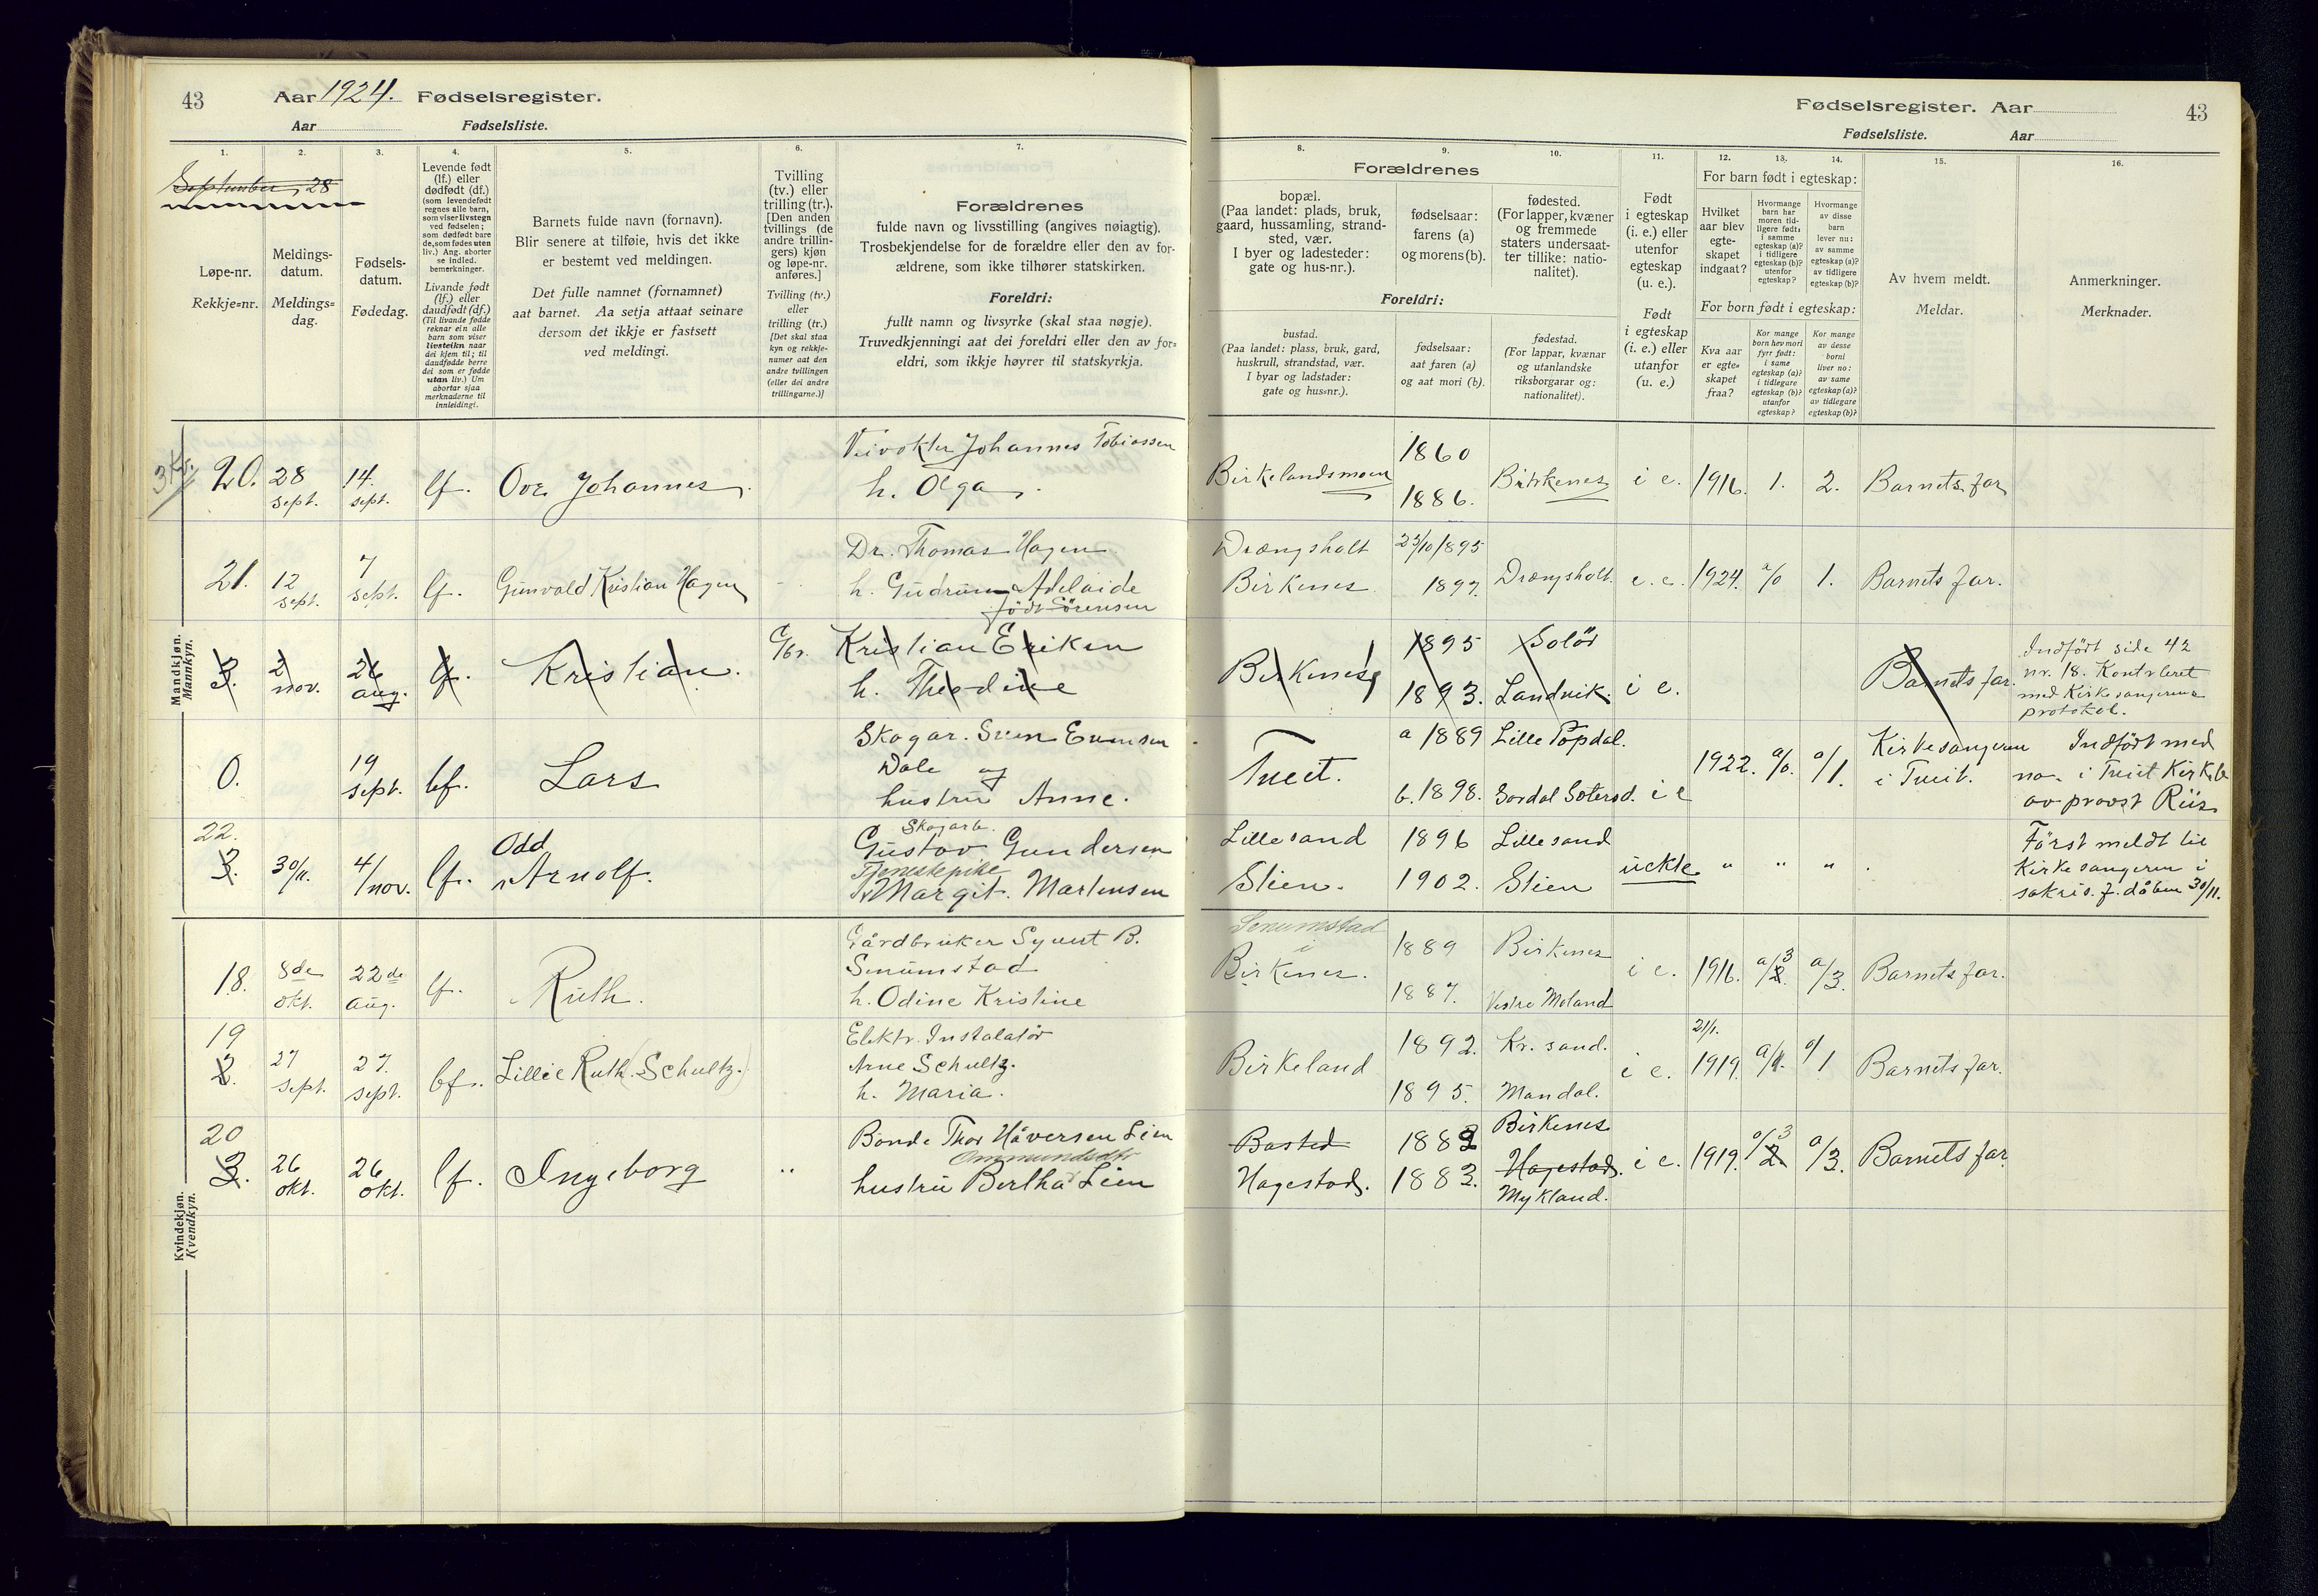 43 Aar 1924. Fødselsregister.
Aar Fødselsliste.
Fødselsregister. Aar 43
Fødselsliste. Aar
1. 2. 3. 4. 5. 6. 7. 8. 9. 10. 11. 12. 13. 14. 15. 16.
September, 28
Løpe-nr.
Rekkje=nr.
Meldings-
datum.
Meldings=
dag.
Fødsels-
datum.
Fødedag.
Levende født
(lf.) eller
dødfødt (df.)
(som levendefødt
regnes alle barn,
som viser livstegn
ved fødselen;
som dødfødt bare
de, som fødes uten
liv.) Ang. aborter
se indled.
bemerkninger.
Livande født
(lf.) eller
daudfødt (df.)
(Til livande fødde
reknar ein alle
barn som viser
livsteikn naar
dei kjem til; til
daudfødde berre
dei som er fødde
utan liv.) Um
abortar sjaa
merknaderne til
innleidingi.
Barnets fulde navn (fornavn).
Blir senere at tilføie, hvis det ikke
er bestemt ved meldingen.
Det fulle namnet (fornamnet)
aat barnet. Aa setja attaat seinare
dersom det ikkje er fastsett
ved meldingi.
Tvilling
(tv.) eller
trilling (tr.).
[Den anden
tvillings (de
andre trillin-
gers) kjøn
og løpe-nr.
anføres.]
Tvilling (tv.)
eller
trilling (tr.)
[Det skal staa
kyn og rekkje-
numer aat den
andre tvillingen
(eller dei andre
trillingarne.)]
Forældrenes
fulde navn og livsstilling (angives nøiagtig).
Trosbekjendelse for de forældre eller den av for-
ældrene, som ikke tilhører statskirken.
Foreldri:
fullt namn og livsyrke (skal staa nøgje).
Truvedkjenningi aat dei foreldri eller den av for=
eldri, som ikkje høyrer til statskyrkja.
Forældrenes
bopæl.
(Paa landet: plads, bruk,
gaard, hussamling, strand-
sted, vær.
I byer og ladesteder:
gate og hus-nr.).
fødselsaar:
farens (a)
og morens (b).
fødested.
(For lapper, kvæner
og fremmede
staters undersaat-
ter tillike: natio-
nalitet).
Foreldri:
bustad.
(Paa landet: plass, bruk, gard,
huskrull, strandstad, vær.
I byar og ladstader:
gate og hus=nr.).
fødselsaar:
aat faren (a)
og aat mori (b).
fødestad.
(For lappar, kvænar
og utanlandske
riksborgarar og:
nationalitet).
Født
i egteskap
(i. e.) eller
utenfor
egteskap
(u. e.).
Født
i egteskap
(i. e.) eller
utanfor
(u. e.)
For barn født i egteskap:
Hvilket
aar blev
egte-
skapet
indgaat?
Hvormange
barn har
moren tid-
ligere født:
i samme
egteskap (a)?
i tidligere
egteskap (b)?
utenfor
egteskap?
Hvormange
av disse
barn
lever nu:
av samme
egteskap (a)?
av tidligere
egteskap (b)?
For born født i egteskap:
Kva aar
er egte=
skapet
fraa?
Kor mange
born hev mori
fyrr født:
i same
egteskap (a)?
i tidlegare
egteskap (b)?
utanfor
egteskap?
Kor mange
av desse
borni
liver no:
av same
egteskap (a)?
av tidlegare
egteskap (b)?
Av hvem meldt.
Meldar.
Anmerkninger.
Merknader.
Mandkjøn.
Mannkyn.
20. 28 sept. 14. sept. lf. Ove Johannes.
Veivokter Johannes Tobiassen
h. Olga.
Birkelandsmoen 1860 1886. Birkenes i e. 1916. 1. 2. Barnets far
21. 12 sept. 7 sept. lf. Gunvald Kristian Hagen
Dr. Thomas Hagen
h. Gudrun Adelaide
født Sörensen
Drængsholt
Birkenes 23/10/1895 1897. Drængsholt. i. e. 1924. a/0 1. Barnets far.
3. 2 nov. 26 aug. lf. Kristian.
Kristian Eriksen
h. Theodine
Birkenes 1895 Solör
1893. Landvik. i e. Barnets far.
Indfödt side 42
nr. 18. Kontrleret
med Kirkesangerens
protokol.
0. 19 sept. lf. Lars
Skogar. Sven Evensen
Dale og
hustru Anne.
Tveit. a 1889 Lille Topdal.
b. 1898. i e 1922. a/0. a/1.
Kirkesangeren
i Tveit.
Indfödt med
no. i Tveit Kirkeb
av provst Riis
22.
3. 30/11. 4/nov. lf. Odd
Arnolf.
Skogarb.
Gustav Gundersen
Tjenestepike
Margit. Martensen
Lillesand 1896 Lillesand
Stien. 1902. Stien uekte " " "
Först meldt til
Kirkesangeren i
sakris. f. dåben 30/11.
Kvindekjøn.
Kvendkyn.
18. 8de okt. 22de aug. lf. Ruth.
Gårdbruker Syvert B.
Senumstad
h. Odine Kristine
Senumstad
i
Birkenes. 1889 Birkenes
1887. Vestre Moland i e. 1916. a/2. 3 a/3. Barnets far.
19
2. 27 sept. 27. sept. lf. Lillie Ruth (Schultz.)
Elektr. Instalatör
Arne Schultz.
h. Maria.
Birkeland 1892. Kr. sand.
1895. Mandal. i e. 21/1. 1919. a/1. a/1 Barnets far.
20
3. 26 okt. 26 okt. lf. Ingeborg "
Bonde Thor Håversen Lien
Ommundsdtr
hustru Bertha Lien
Bosted
Hagestad. 1882 1883. Birkenes
Hagestad.
Mykland. i e. 1919. a/2. 3 a/3. Barnets far.